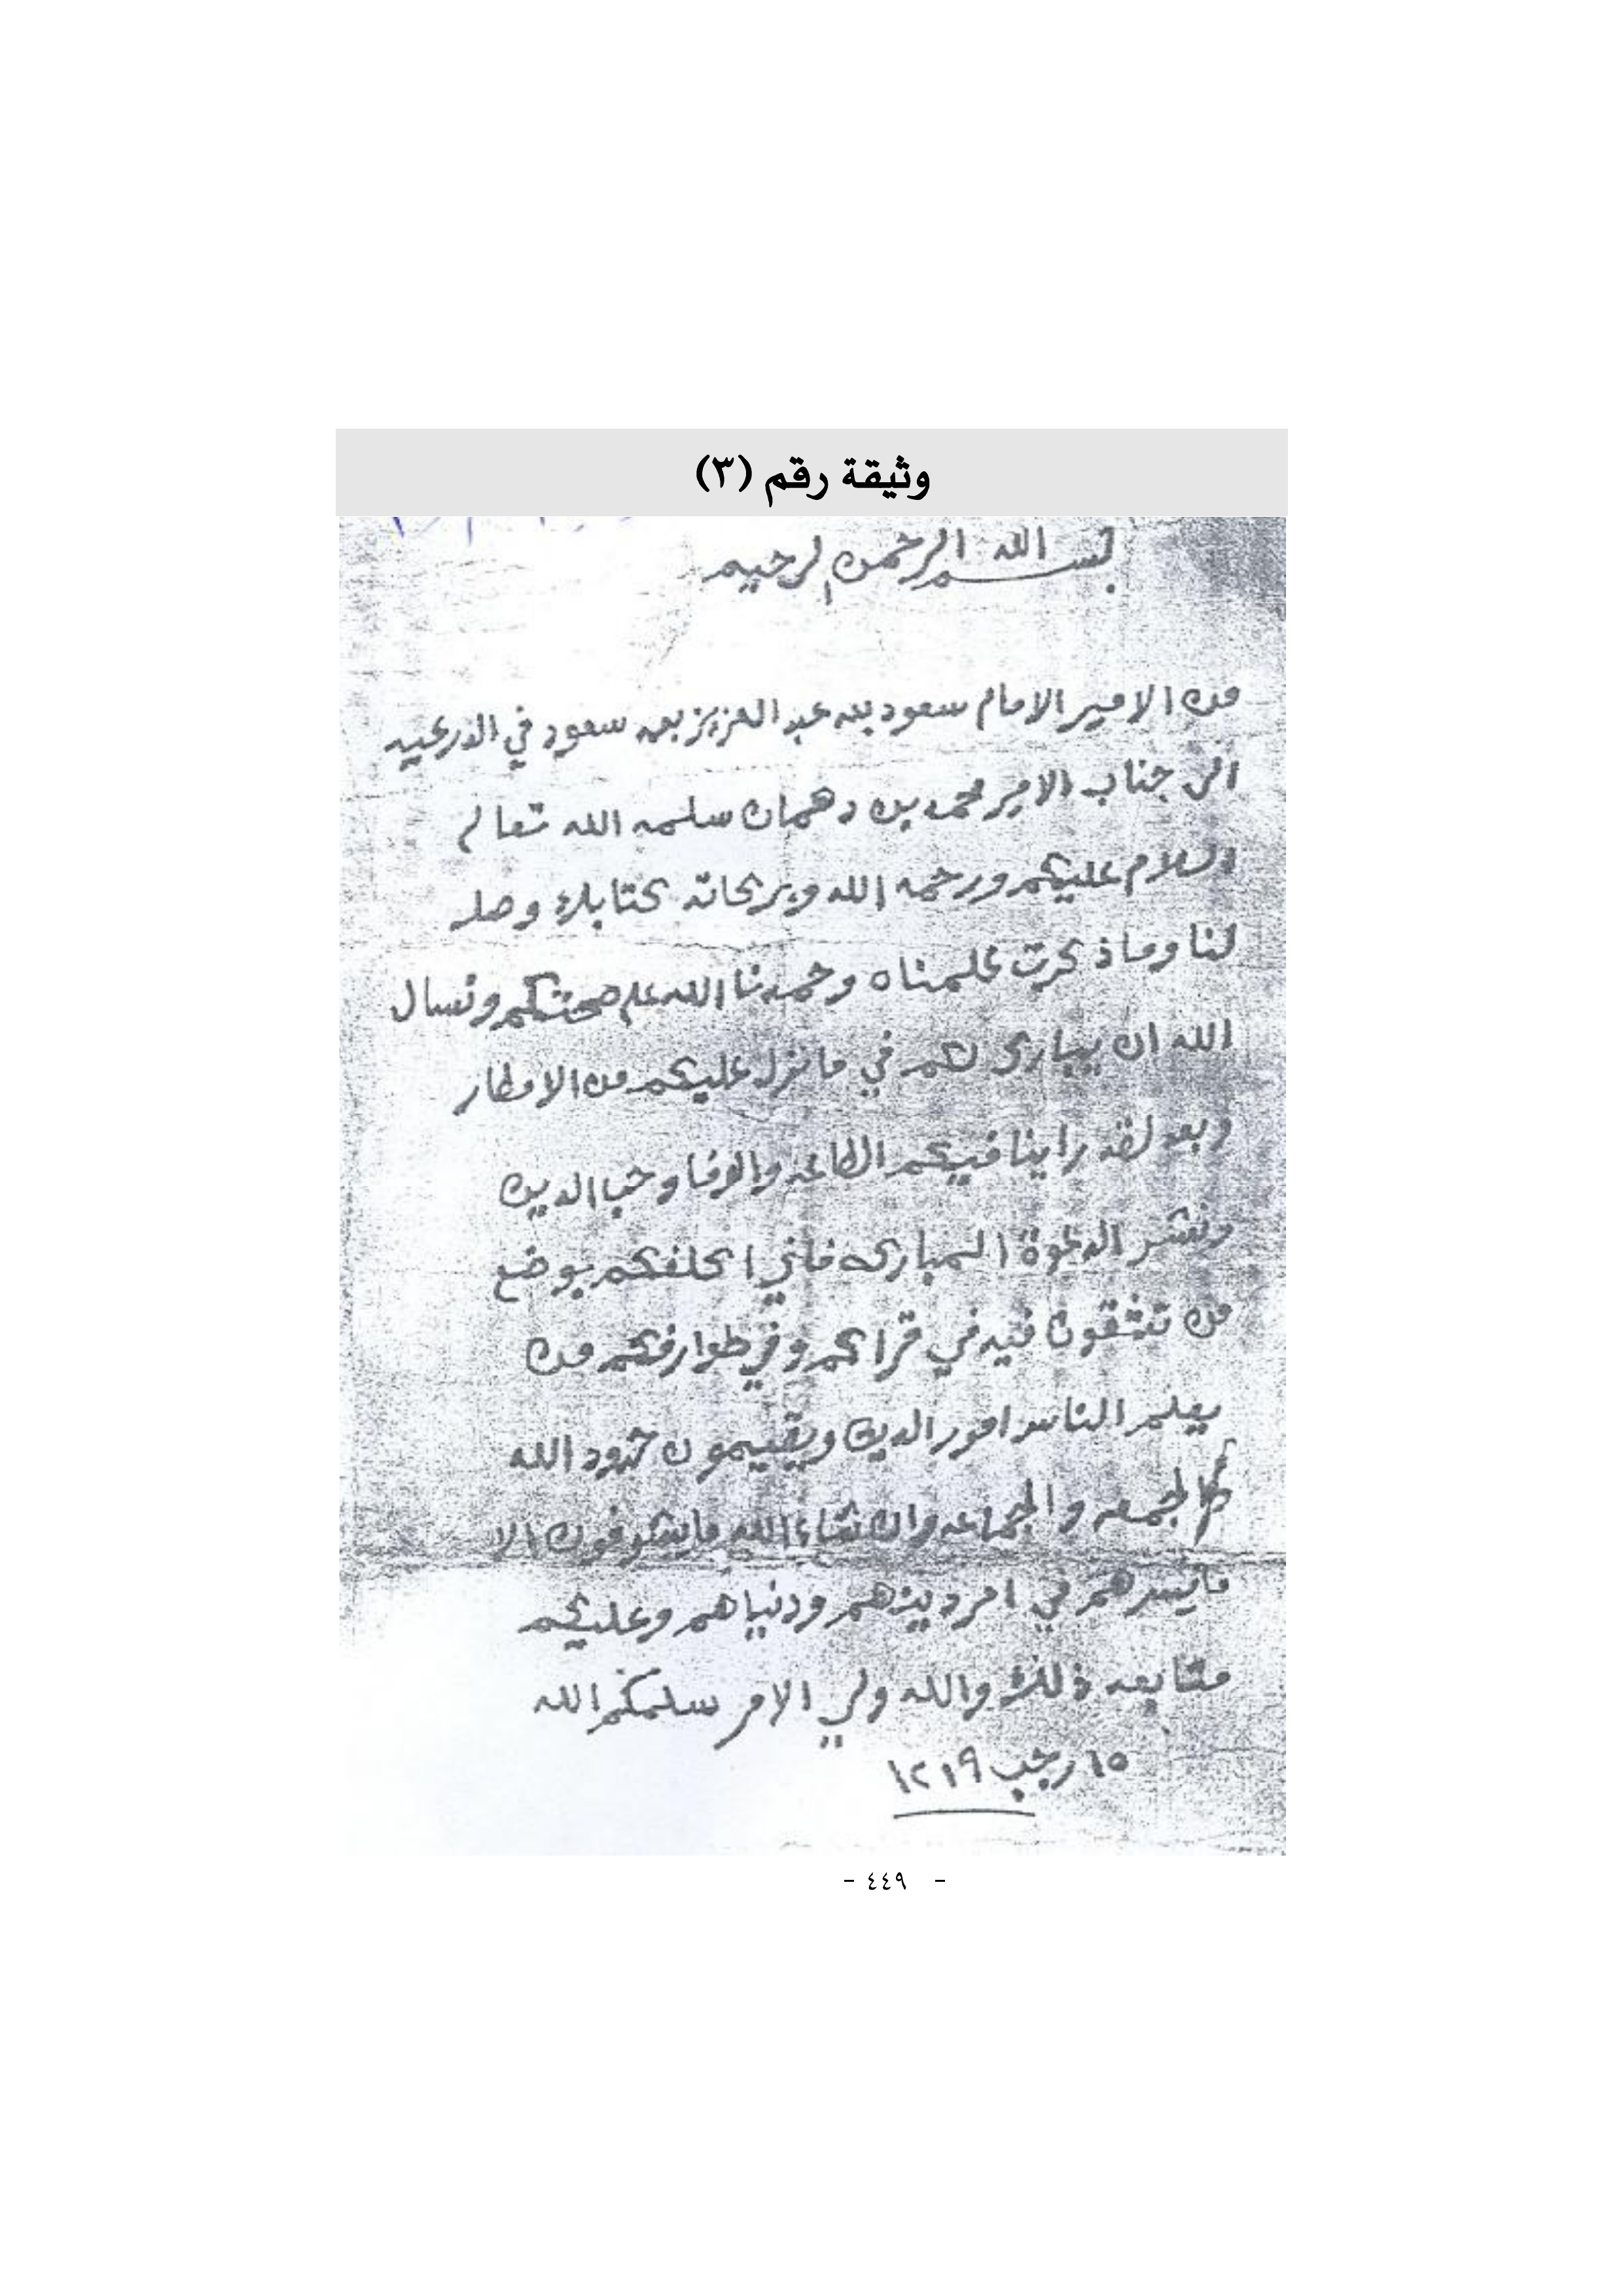 وثيقة رقم (٣)
بسم الله الرحمن الرحيم
من الامير الامام سعود بن عبد العزيز بن سعود في الدرعيه
الى جناب الامير محمد بن دهمان سلمه الله تعالى
السلام عليكم ورحمه الله وبركاته كتابك وصل
لنا وما ذكرت علمناه وحمدنا الله على صحتكم ونسال
الله ان يبارك لكم في ما نزل عليكم من الامطار
وبعد لقد راينا فيكم الطاعه والوفا وحب الدين
ونشر الدعوة المباركه فاني اكلفكم بوضع
من تثقون فيه في قراكم وفي طوارفكم من
يعلم الناس امور الدين ويقيمون حدود الله
الجمعه والجماعه وان شاء الله مايشوفون الا
مايسرهم في امر دينهم ودنياهم وعليكم
متابعه ذلك والله ولي الامر سلمكم الله
١٥ رجب ١٢١٩
- ٤٤٩ -